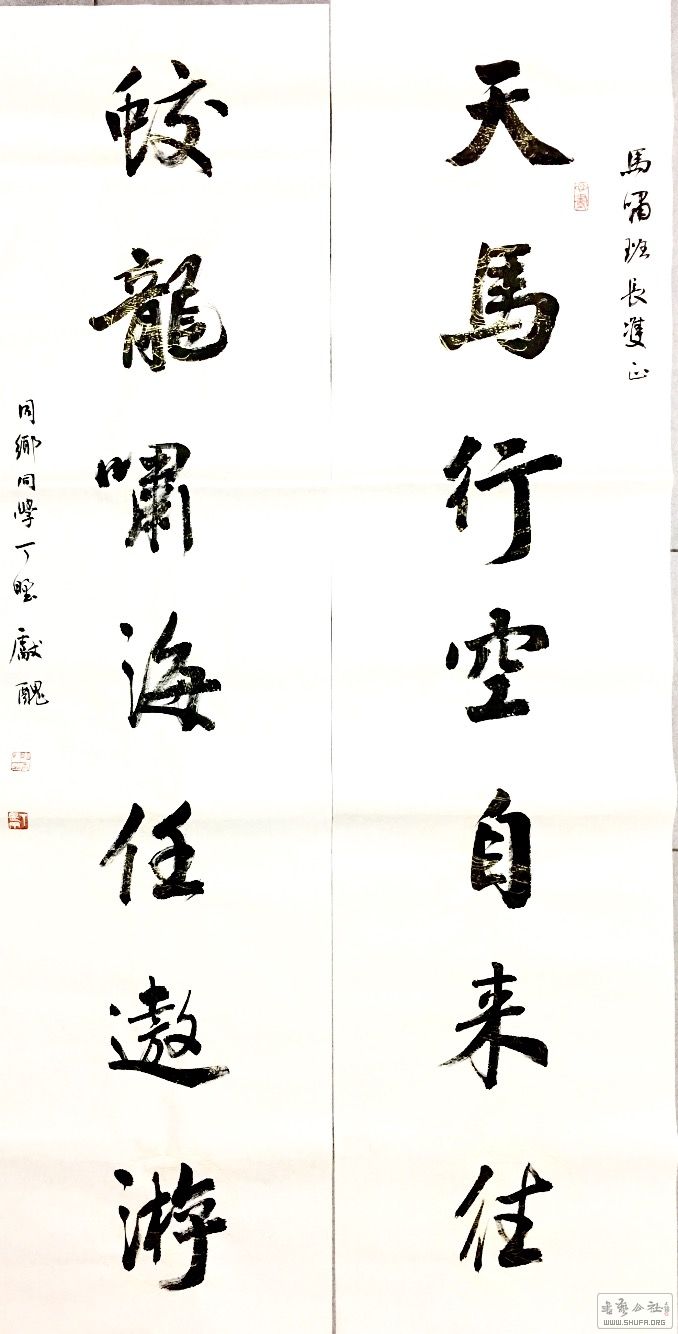 馬嘯班長雙正
天馬行空自来往
蛟龍嘯海任遨游
同鄉同學丁獻醜
WWW.SHUFA.ORG